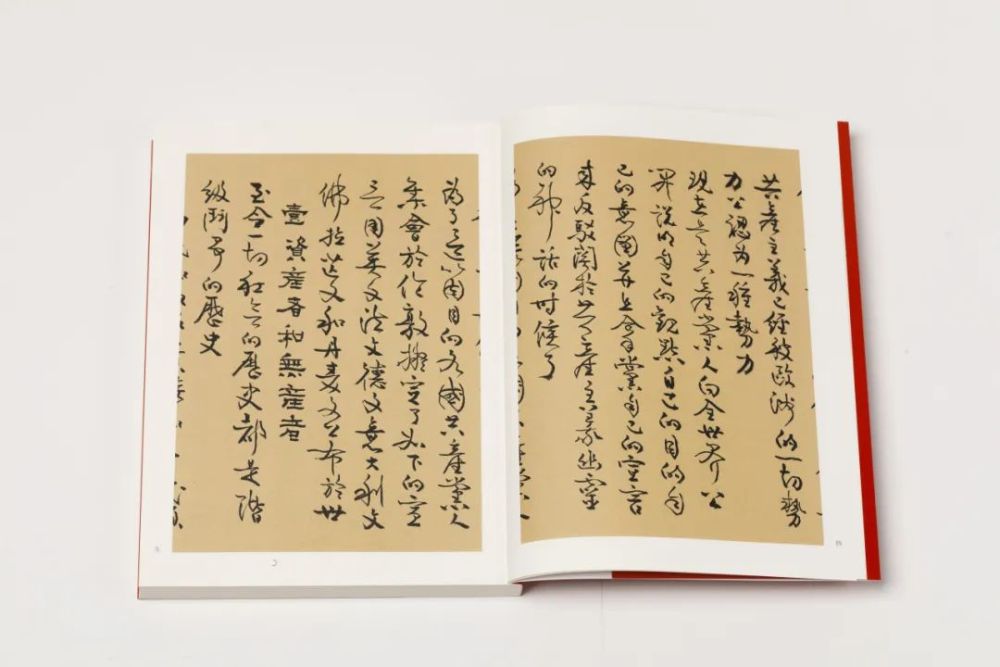 共產主義已經被歐洲的一切勢
力公認為一種勢力
現在是共產黨人向全世界公
開說明自己的觀點自己的目的自
己的意圖並且拿黨自己的宣言
來反駁關於共產主義幽靈
的神話的時候了
為了這個目的各國共產黨人
集會於倫敦擬定了如下的宣
言用英文法文德文意大利文
佛拉芒文和丹麥文公布於世
壹 資產者和無產者
至今一切社會的歷史都是階
級鬥爭的歷史